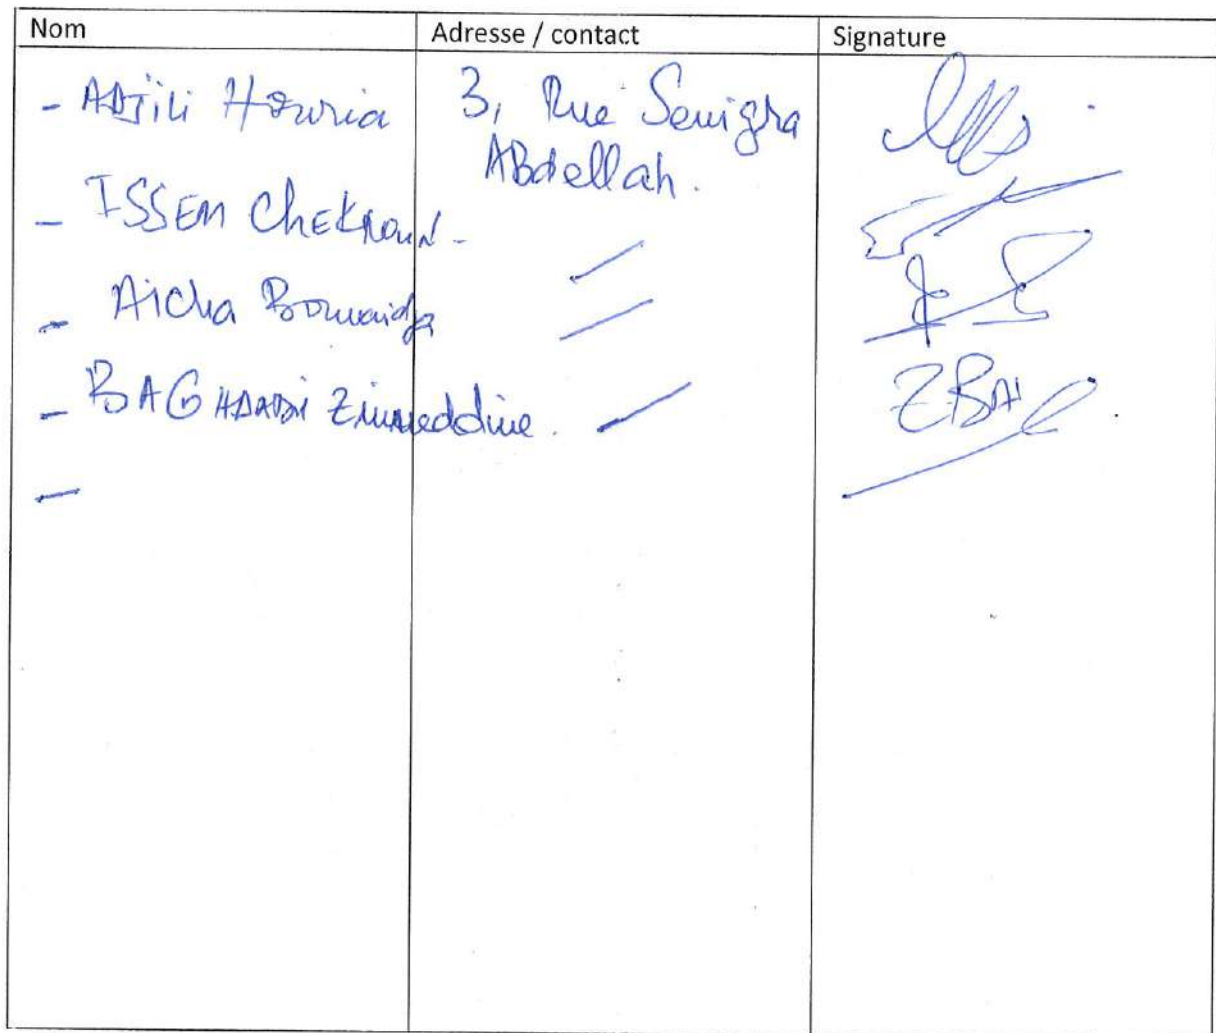 Nom Adresse / contact Signature
- ADjili Houria 3, Rue Senigra
ABdellah.
- ISSEM Chekroun -
- Aicha
- BAGHDADI Zineddine.
-
ZBAH